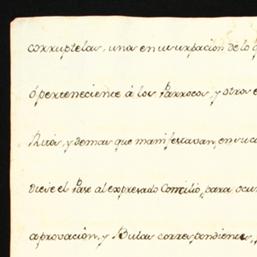 corruptelas, unas en usurpacion de lo
ó perteneciente á los Parrocos, y otros
Ritos, y demas que manifestavan, en su
diese el Pase al expresado Concilio, para
aprovacion, y Bulas correspondientes,